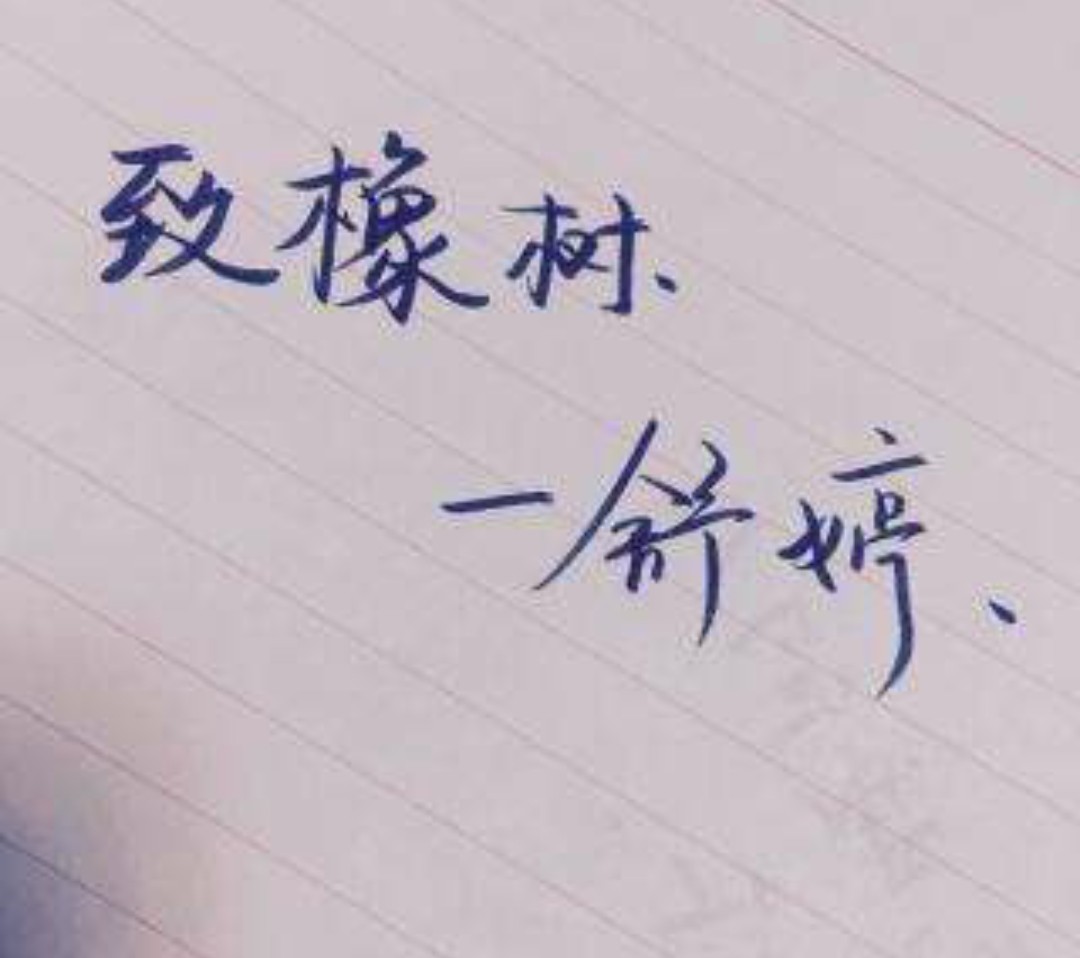 致橡树、
一舒婷、